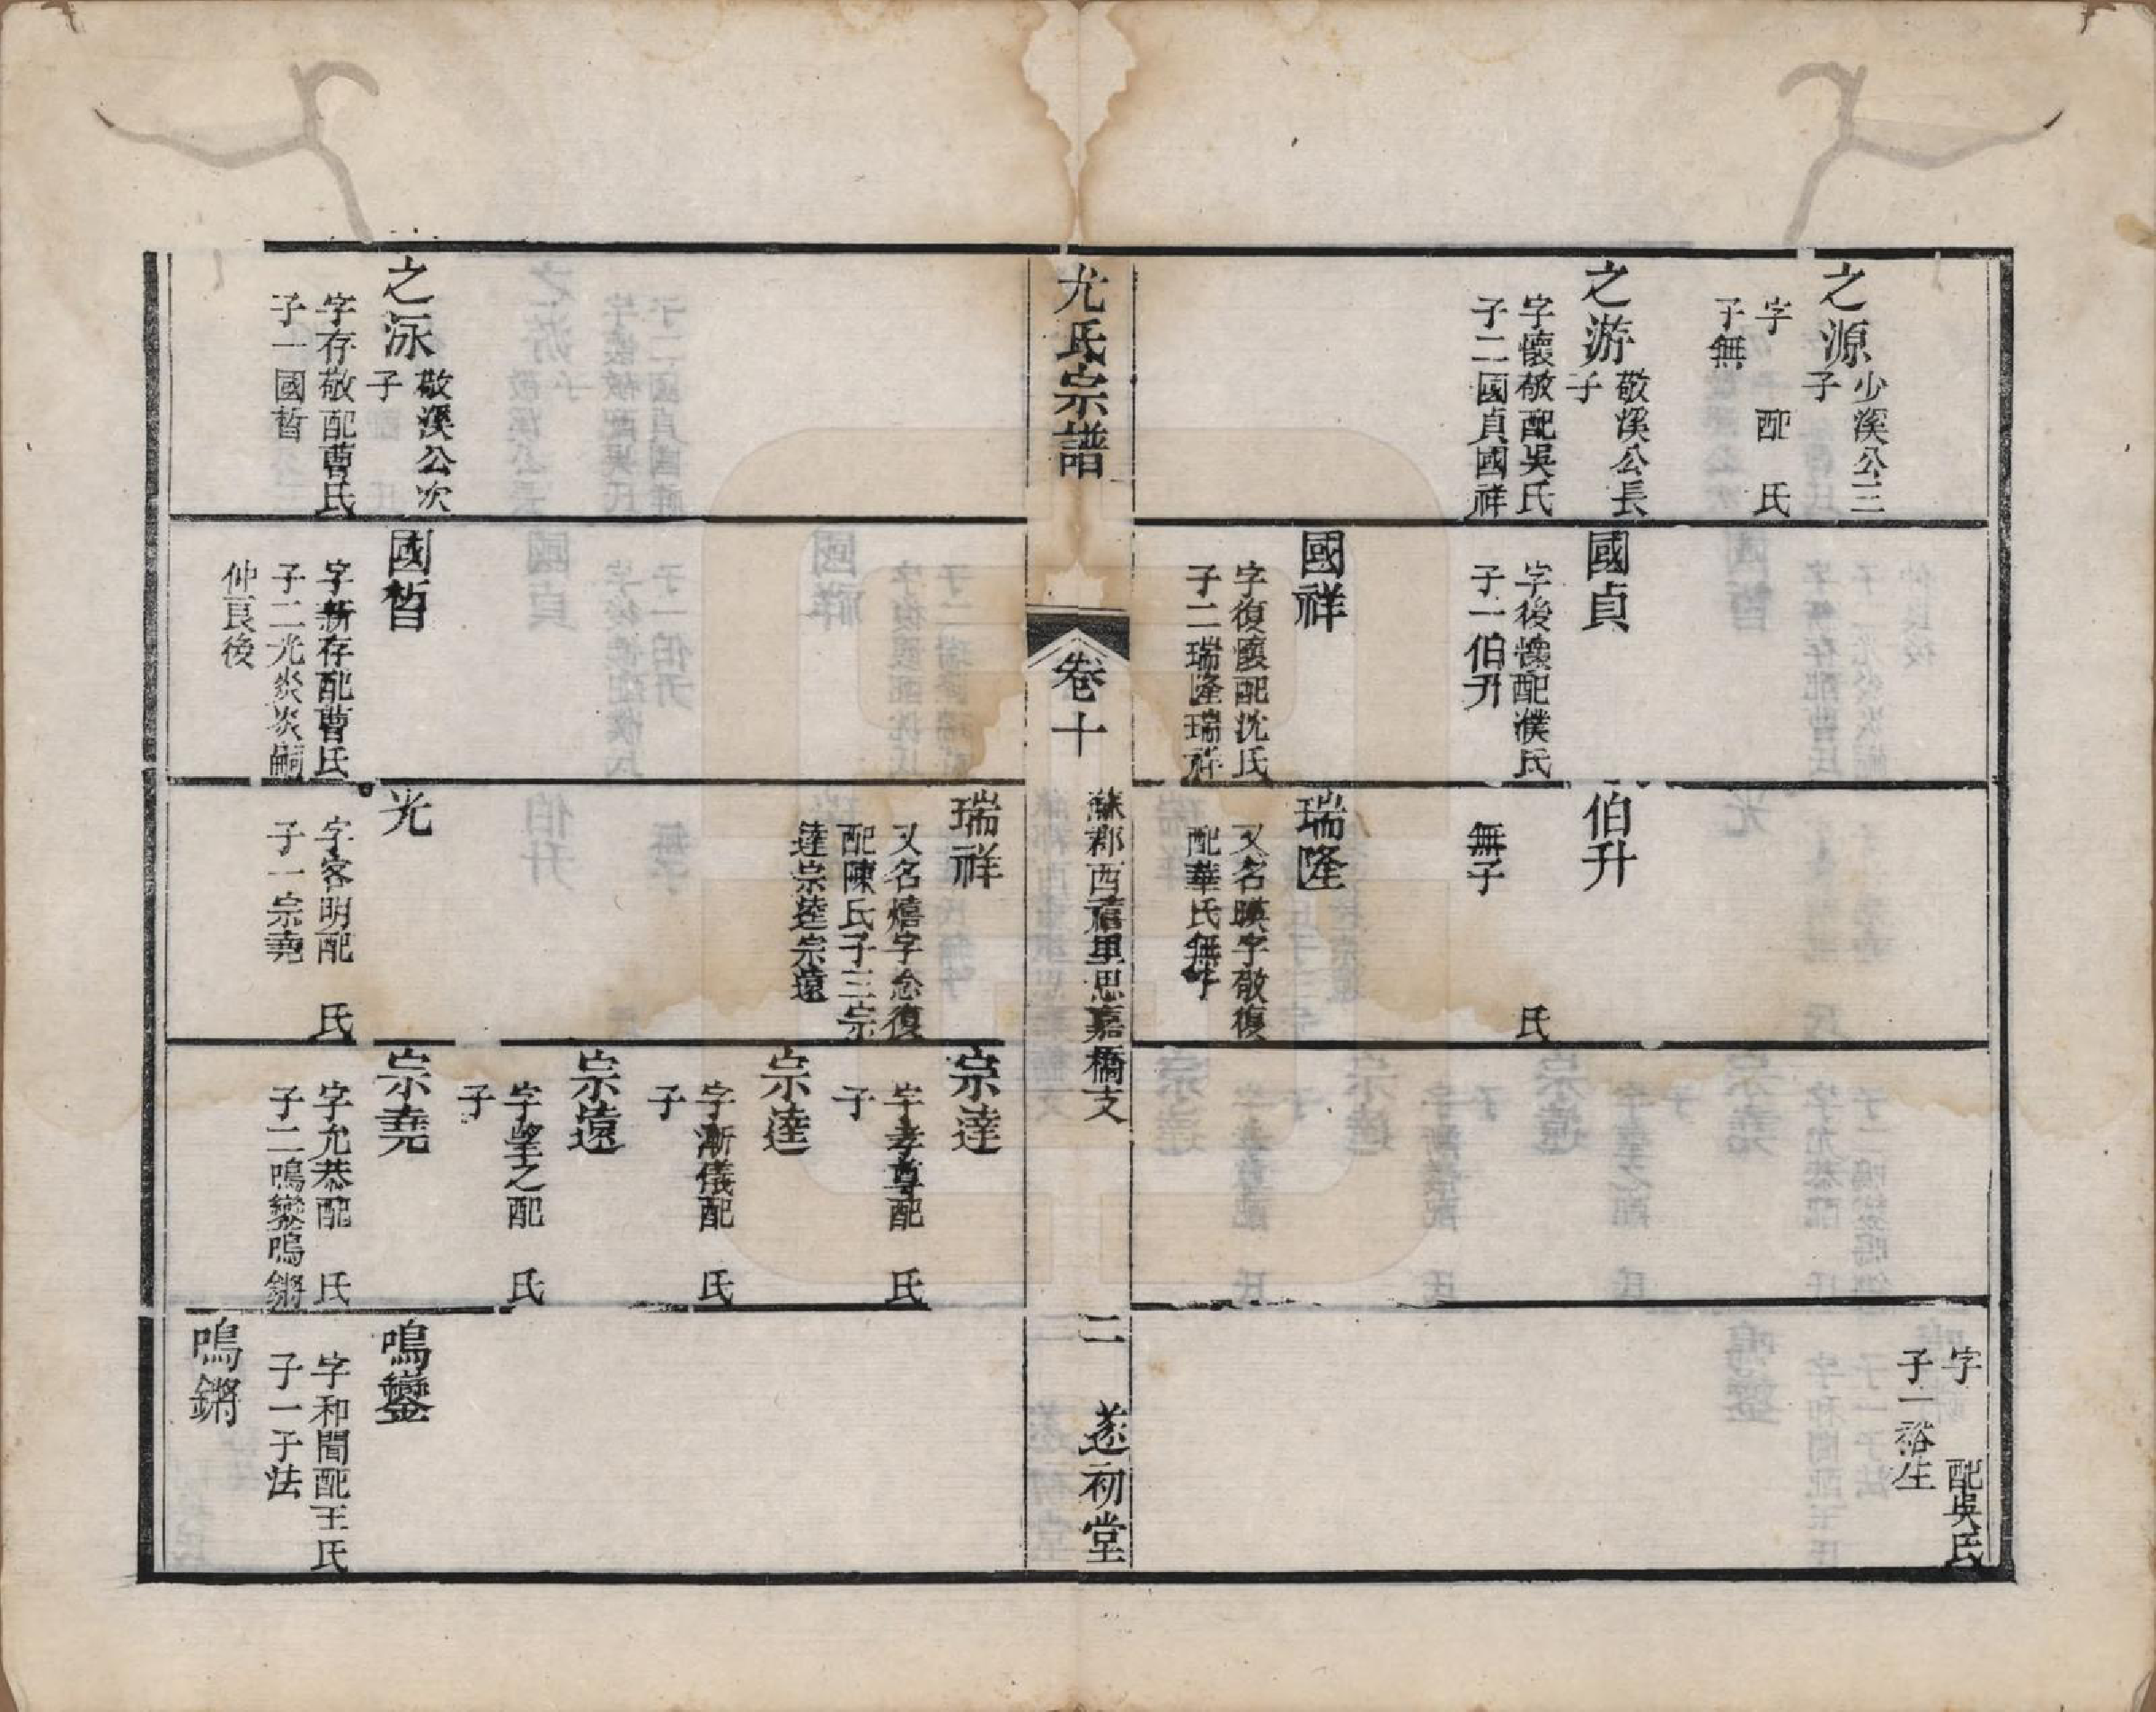 之源
少溪公三
子
字　配　氏
子無
之游
敬溪公長
子
字懷椒配吳氏
子二國貞國祥
國貞
字後懷配濮氏
子一伯升
國祥
字復懷配沈氏
子二瑞隆瑞祥
伯升
氏
無子
瑞隆
又名暎字敬復
配華氏無子
字　配吳氏
子一裕生
尤氏宗譜
卷十
蘇郡西禧里思嘉橋支
二
遂初堂
之泳
敬溪公次
子
字存敬配曹氏
子一國晳
國晳
字新存配曹氏
子二光炎炎嗣
仲良後
瑞祥
又名熺字念復
配陳氏子三宗
達宗逵宗遠
光
字客明配　氏
子一宗堯
宗達
字孝尊配　氏
子
宗逵
字漸儀配　氏
子
宗遠
字望之配　氏
子
宗堯
字允恭配　氏
子二鳴鑾鳴鏘
鳴鑾
字和聞配王氏
子一于法
鳴鏘